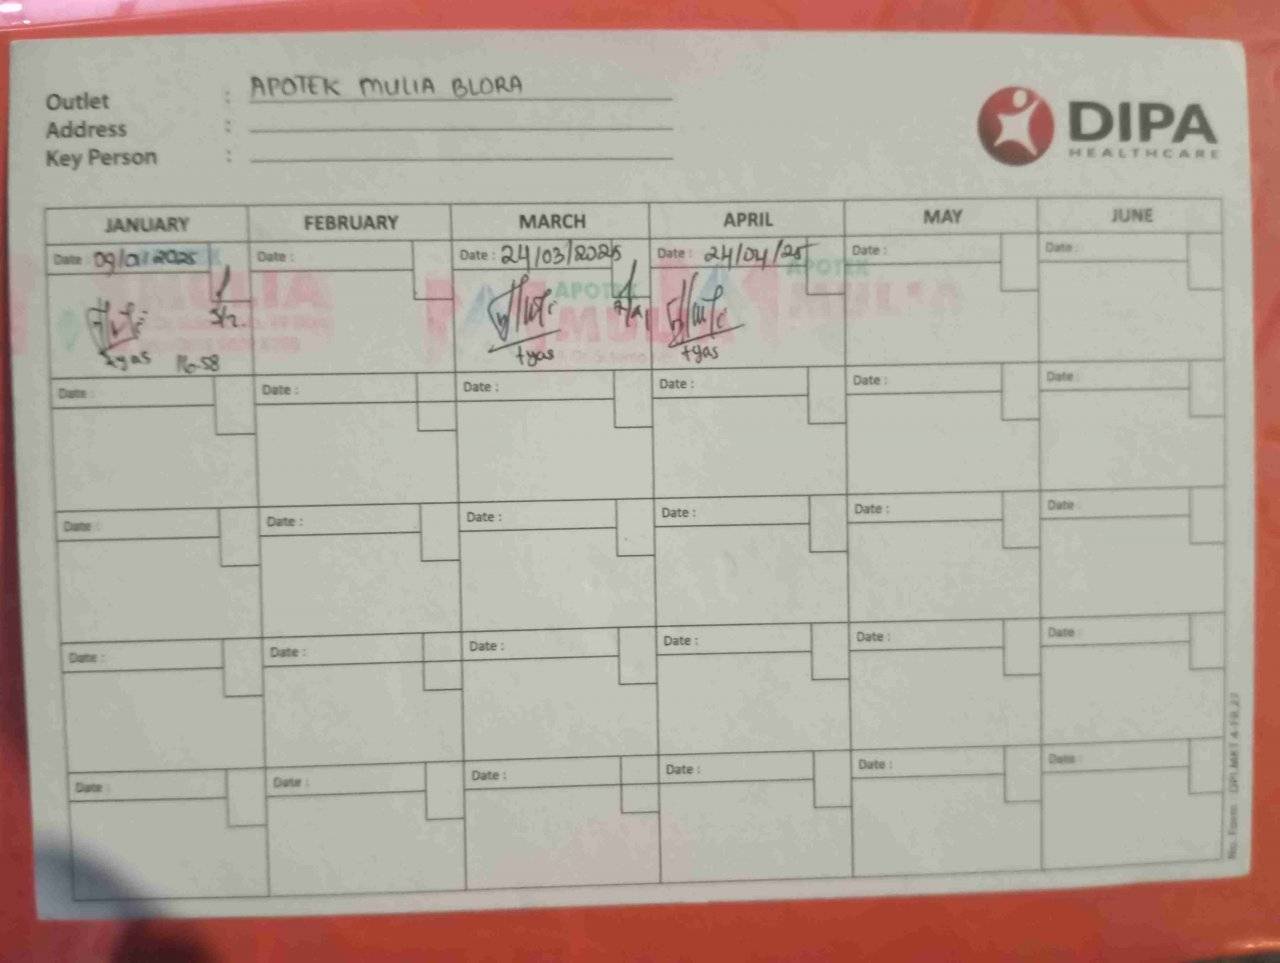 Outlet : APOTEK MULIA BLORA
Address :
Key Person :
DIPA
HEALTHCARE
JANUARY FEBRUARY MARCH APRIL MAY JUNE
Date : 09/01/2025 Date : Date : 24/03/2025 Date : 24/04/25 Date : Date :
APOTEK APOTEK
MULIA MULIA MULIA
tyas 16-58 tyas tyas
Date : Date : Date : Date : Date : Date :
Date : Date : Date : Date : Date : Date :
Date : Date : Date : Date : Date : Date :
Date : Date : Date : Date : Date : Date :